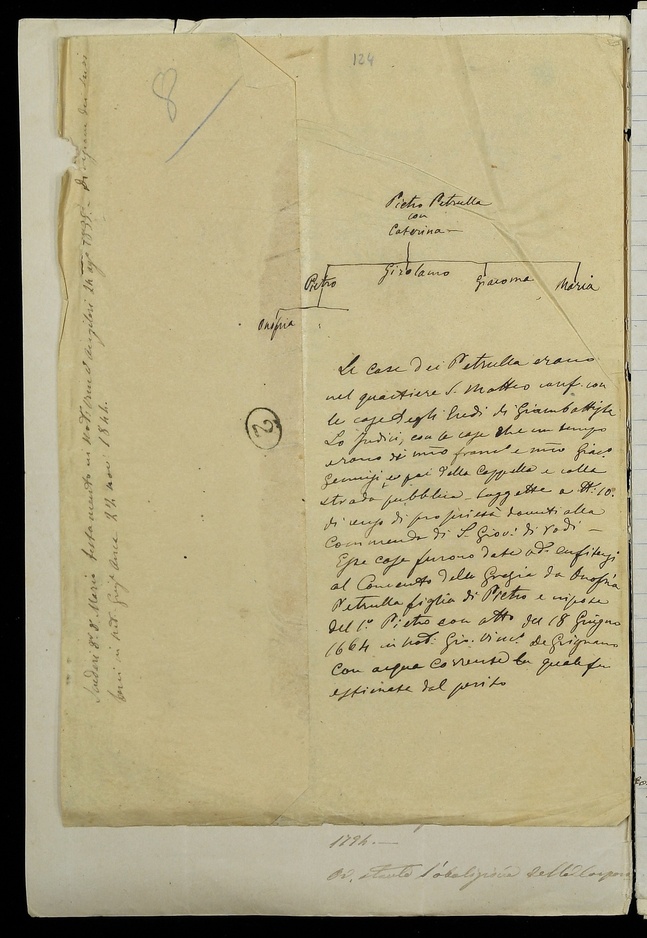 124
8
Pietro Petrulla
con
Caterina —
Pietro Girolamo Giacoma Maria
Onofria
2
Le case dei Petrulla erano
nel quartiere S. Matteo conf. con
le case degli Eredi di Giambattista
Lo Judici, con le case che un tempo
erano di mro franc. e mro Giac.
e poi della Cappella e colla
strada pubblica – soggette a tt. 10.
di censo di proprietà dovuti alla
Commenda di S. Giov. di Rodi —
Esse case furono date ad enfiteusi
al Convento della Grazia da Onofria
Petrulla figlia di Pietro e nipote
del 1º Pietro con atto del 18 Giugno
1664 in not. Gio. Vinc. de Grignano
con acqua corrente la quale fu
estimata dal perito
testamento in not.
in not. 24 nov. 1844.
1794. —
stante l'abolizione delle